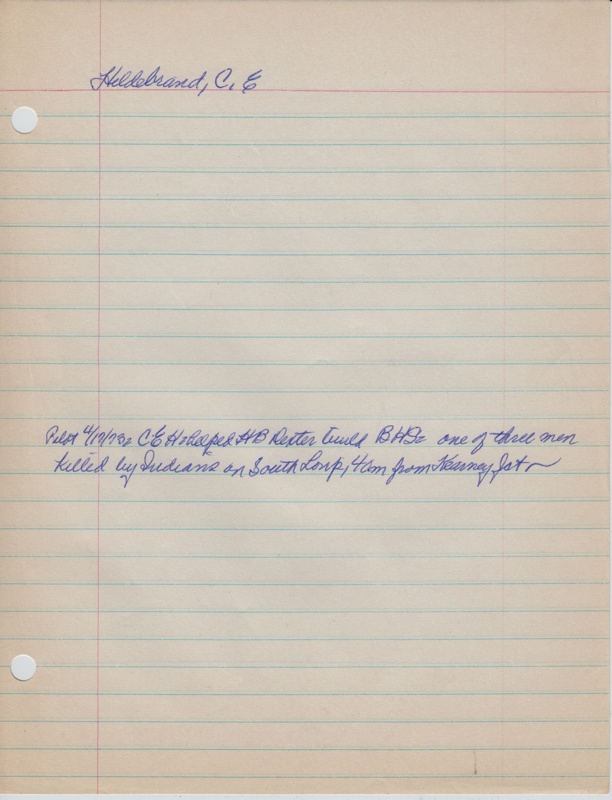 Hildebrand, C. E
Pilot 4/17/73, C E H = helped H B Dexter build B H D = one of three men
killed by Indians on South Loup, 40m from Kearney Jct